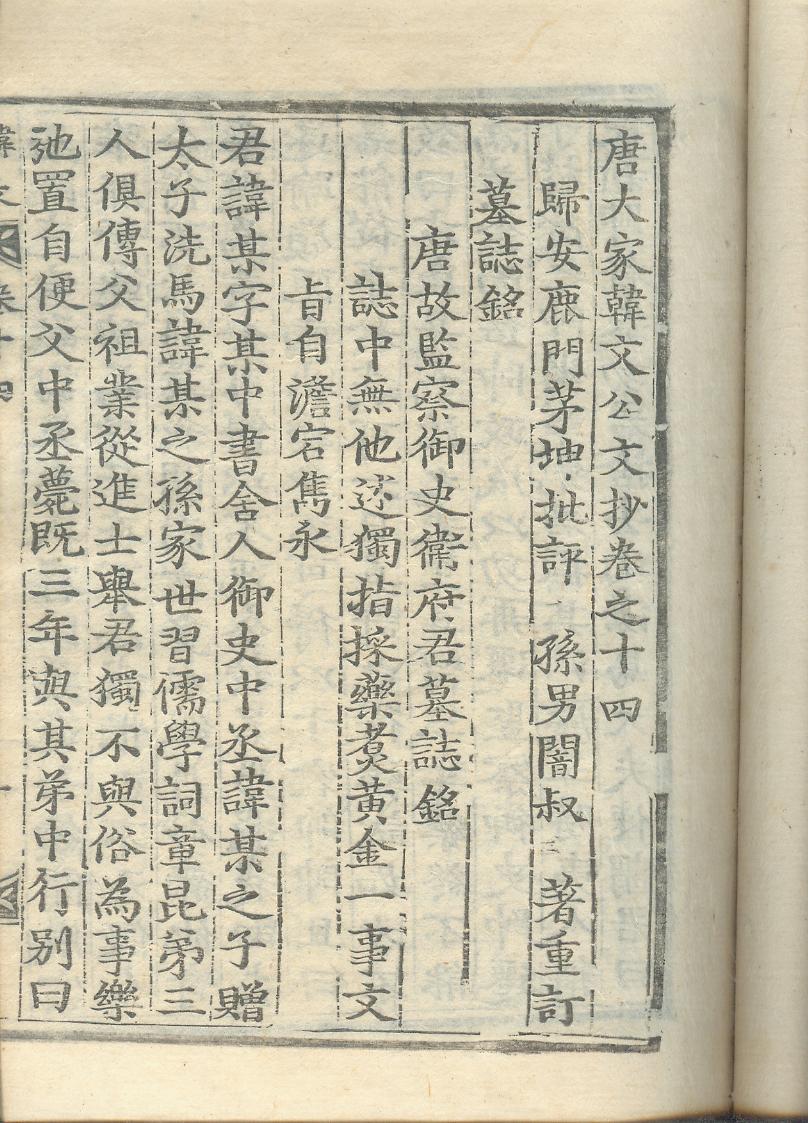 唐大家韓文公文抄卷之十四
歸安鹿門茅坤批評 孫男闇叔著重訂
墓誌銘
唐故監察御史衞府君墓誌銘
誌中無他述獨指採藥煮黃金一事文
旨自澹宕雋永
君諱某字某中書舍人御史中丞諱某之子贈
太子洗馬諱某之孫家世習儒學詞章昆弟三
人俱傳父祖業從進士舉君獨不與俗為事樂
弛置自便父中丞薨既三年與其弟中行别曰